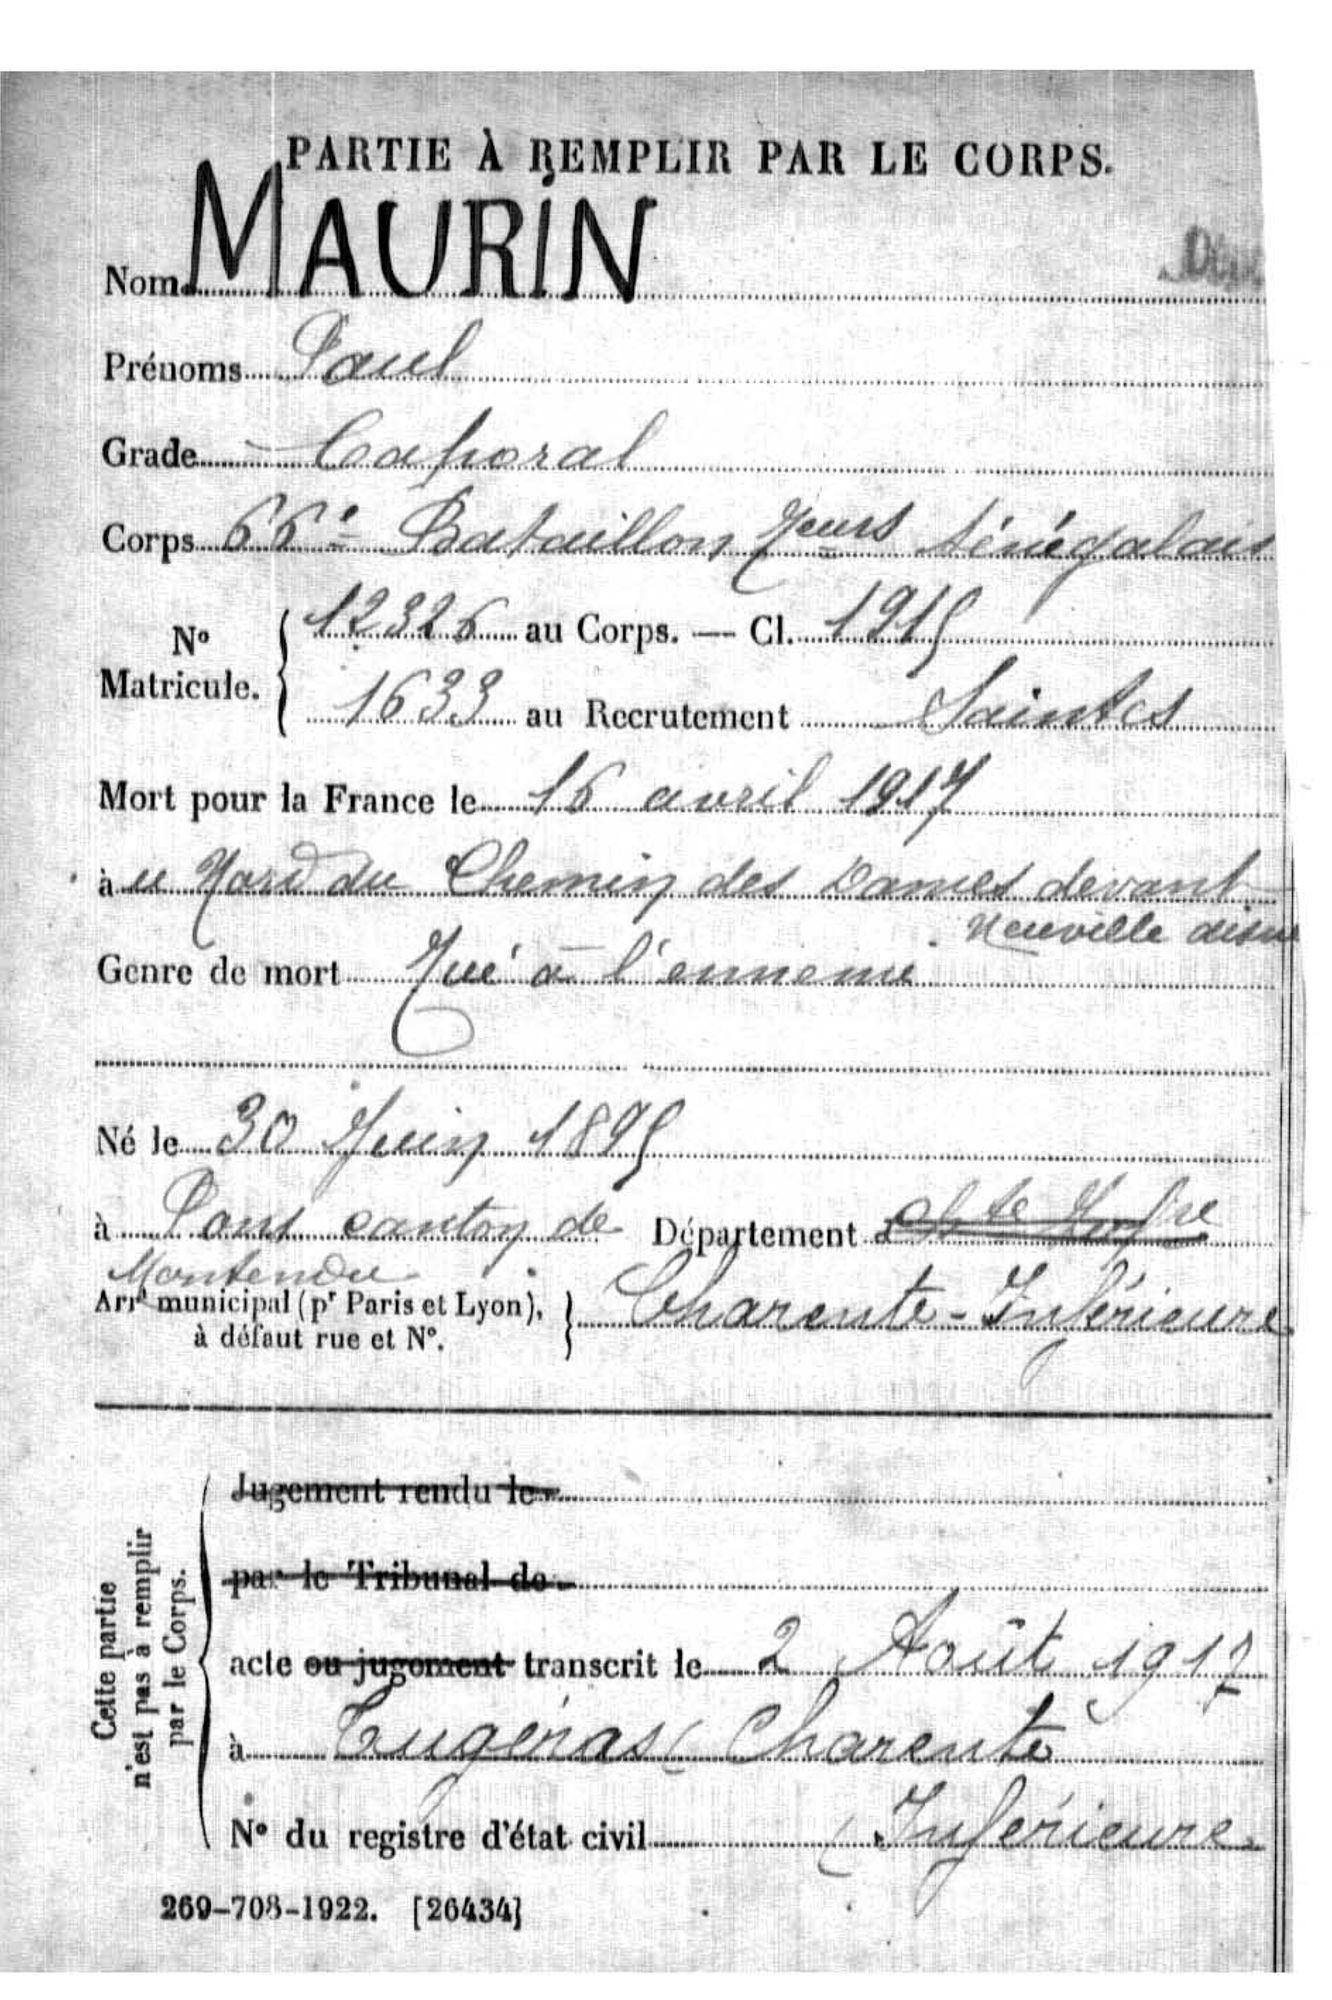 PARTIE À REMPLIR PAR LE CORPS.
Nom MAURIN
Prénoms Paul
Grade Caporal
Corps 66e Bataillon Teurs Sénégalais
No Matricule. 12326 au Corps. — Cl. 1915
1633 au Recrutement Saintes
Mort pour la France le 16 avril 1917
àu Nord du Chemin des Dames devant
Neuville aisne
Genre de mort Tué à l'ennemi
Né le 30 Juin 1895
à Pons canton de Département Chte Infre
Montendre
Arrt municipal (pr Paris et Lyon), à défaut rue et No. Charente-Inférieure
Cette partie n'est pas à remplir par le Corps.
Jugement rendu le
par le Tribunal de
acte ou jugement transcrit le 2 Août 1917
à Tugéras (Charente
No du registre d'état civil (Inférieure
269-708-1922. [26434]